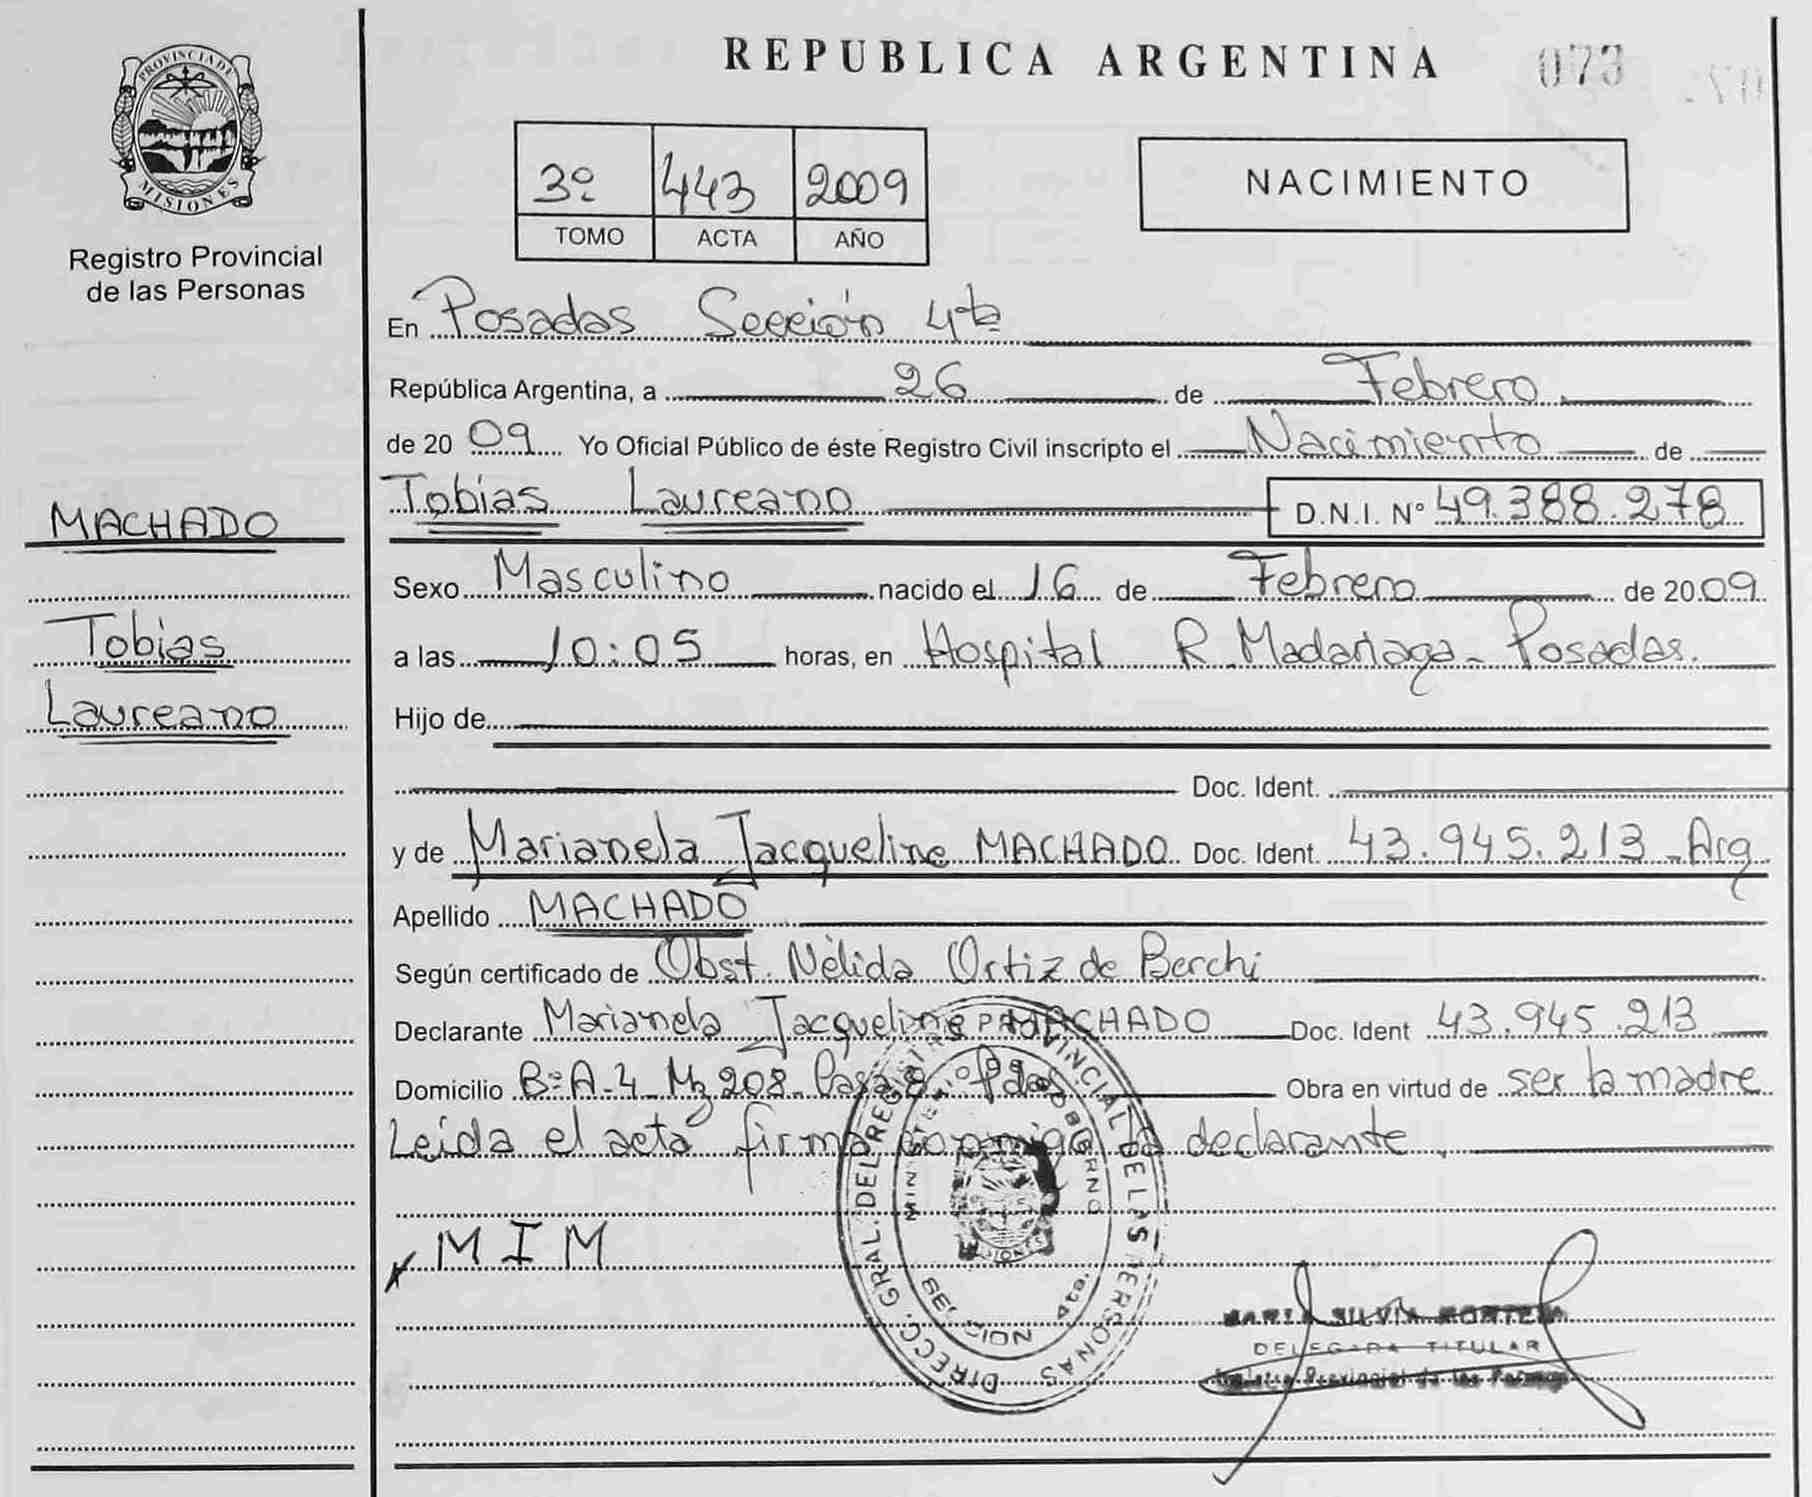 REPUBLICA ARGENTINA
073
PROVINCIA DE
MISIONES
Registro Provincial
de las Personas
3º 443 2009
TOMO ACTA AÑO
NACIMIENTO
En Posadas Sección 4ta
República Argentina, a 26 de Febrero
de 20 09 Yo Oficial Público de éste Registro Civil inscripto el Nacimiento de
Tobias Laureano D.N.I. Nº 49.388.278
MACHADO
Tobias
Laureano
Sexo Masculino nacido el 16 de Febrero de 2009
a las 10:05 horas, en Hospital R. Madariaga - Posadas.
Hijo de
Doc. Ident.
y de Marianela Jacqueline MACHADO Doc. Ident. 43.945.213 - Arg
Apellido MACHADO
Según certificado de Obst. Nélida Ortiz de Berchi
Declarante Marianela Jacqueline MACHADO Doc. Ident 43.945.213
Domicilio Bº A-4 Mz 208 - Casa 8 - Pdas Obra en virtud de ser la madre
Leída el acta firma conmigo la declarante
MIM
DIRECC. GRAL. DEL REGISTRO PROVINCIAL DE LAS PERSONAS
MINISTERIO DE GOBIERNO
MISIONES
MARIA SILVIA
DELEGADA TITULAR
Registro Provincial de las Personas